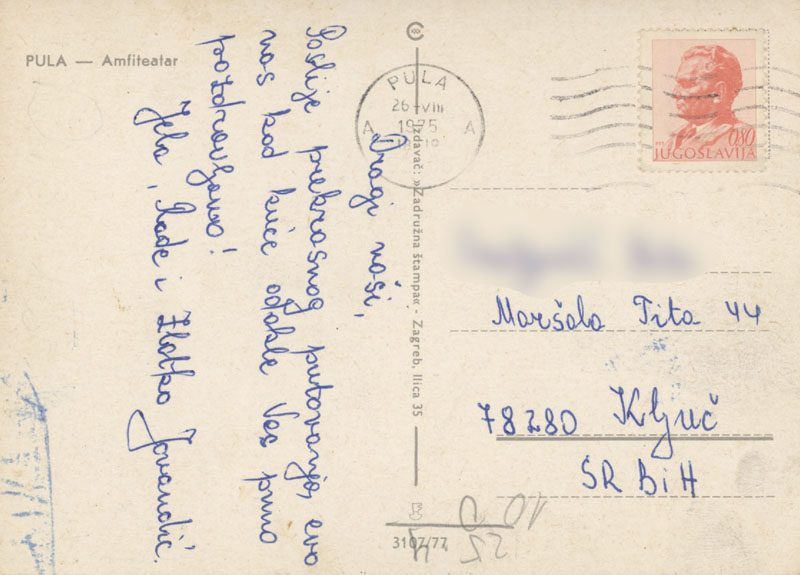 PULA — Amfiteatar
Dragi naši,
Poslije prekrasnog putovanja, evo
nas kod kuće odakle Vas puno
pozdravljamo!
Jela, Rade i Zlatko Jovandić.
Izdavač: »Zadružna štampa« - Zagreb, Ilica 35
3107/77
PULA
26-VIII
1975
A A
0,80
JUGOSLAVIJA
Maršala Tita 44
78280 Ključ
SR BiH